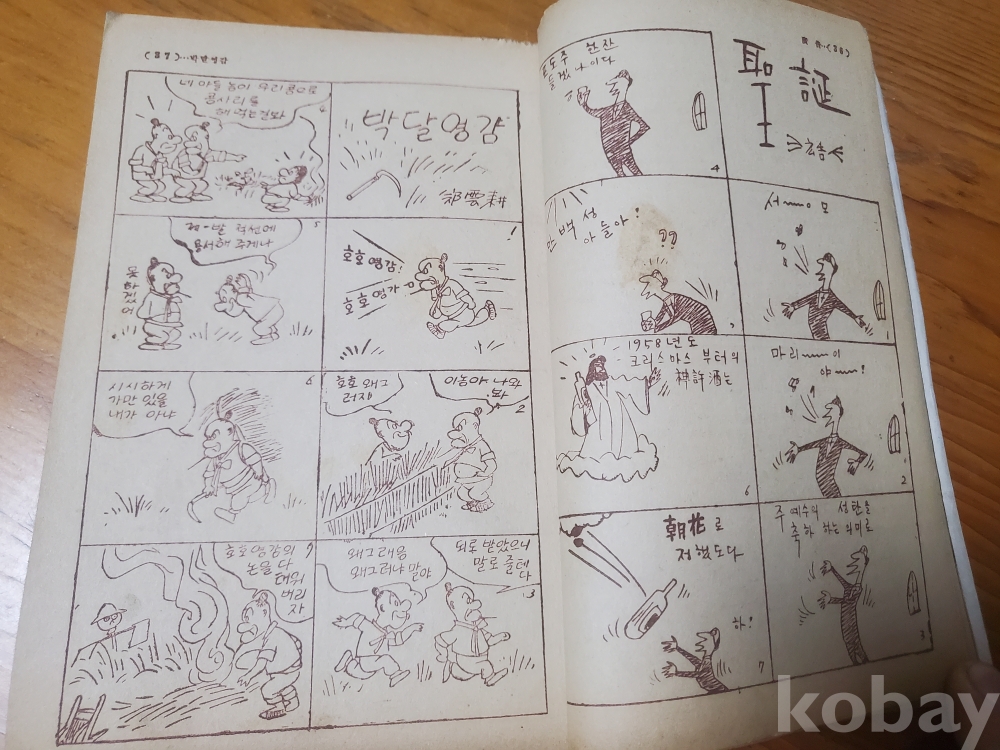 (86)
聖誕
서~~~ㅇ모
1
마리~~~이
야~~~!
2
주 예수의 성탄을
축하 하는 의미로
3
포도주 한잔
들겠나이다
4
만백성
아들아!
??
5
1958년도
크리스마스 부터의
神許酒는
6
朝花로
정했도다
하!
7
(87)…박달영감
박달영감
鄭雲耕
!
호호영감!
호호영감
이놈아 나와
봐!
호호 왜그
러지
2
되로 받았으니
말로 줄테
다
왜그래응
왜그러냐 말야
3
네 아들 놈이 우리콩으로
콩서리를
해 먹는건봐
4
제-발 적선에
용서해 주게나
5
못하겠어
시시하게
가만 있을
내가 아냐
6
호호영감의
논을 다
태워
버리
자
7
kobay